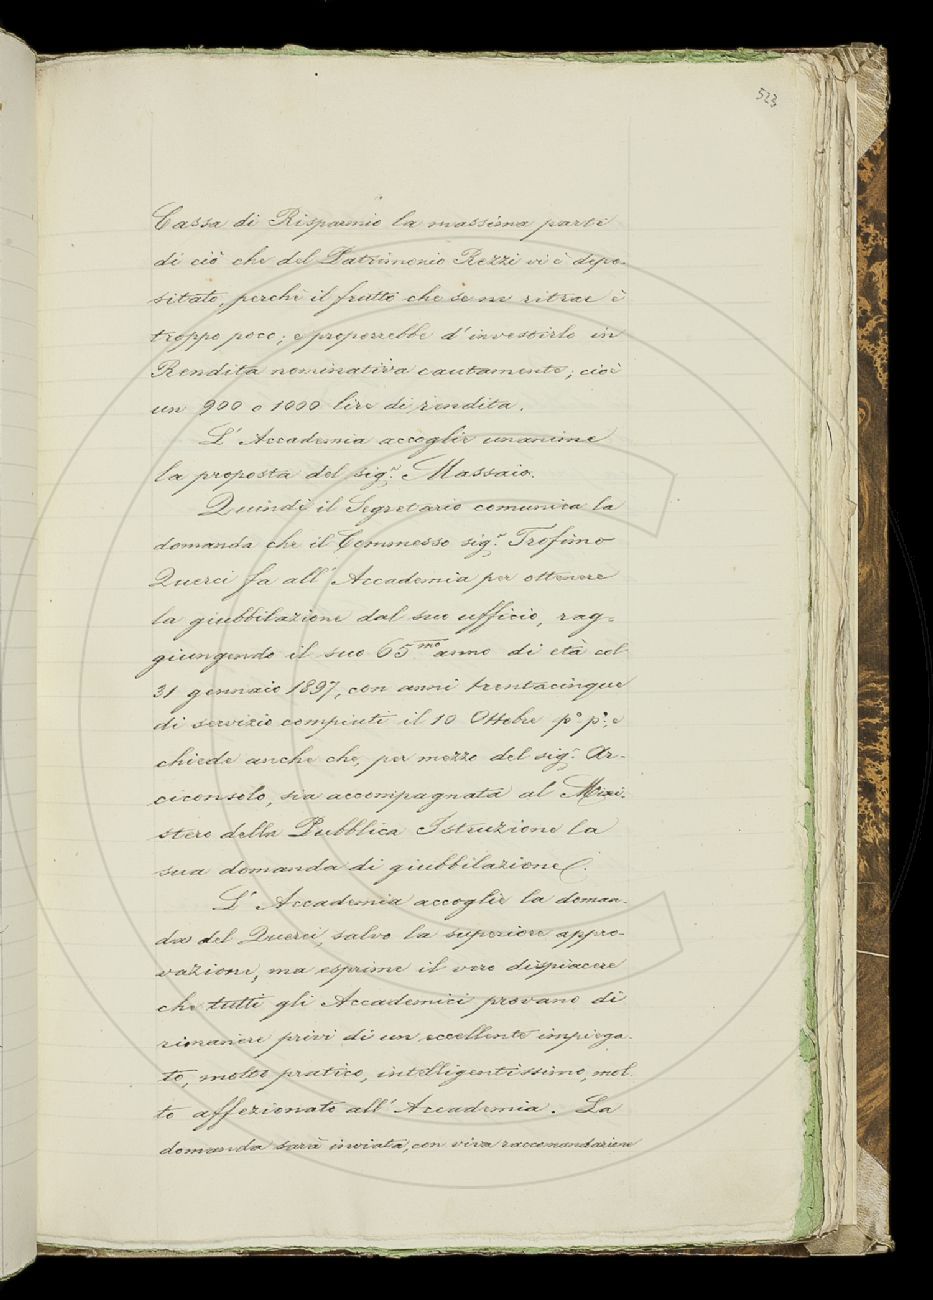 523
Cassa di Risparmio la massima parte
di ciò che del Patrimonio Rezzi vi è depo-
sitato, perchè il frutto che se ne ritrae è
troppo poco; e proporrebbe d'investirlo in
Rendita nominativa cautamente, cioè
un 900 o 1000 lire di rendita.
L'Accademia accoglie unanime
la proposta del sig.r Massaio.
Quindi il Segretario comunica la
domanda che il Commesso sig.r Trofimo
Querci fa all'Accademia per ottenere
la giubbilazione dal suo ufficio, rag-
giungendo il suo 65mo anno di età col
31 gennaio 1897, con anni trentacinque
di servizio compiuti il 10 Ottobre p.o p.o; e
chiede anche che, per mezzo del sig.r Ar-
ciconsolo, sia accompagnata al Mini-
stero della Pubblica Istruzione la
sua domanda di giubbilazione.
L'Accademia accoglie la doman-
da del Querci, salvo la superiore appro-
vazione, ma esprime il vero dispiacere
che tutti gli Accademici provano di
rimanere privi di un eccellente impiega-
to, molto pratico, intelligentissimo, mol
to affezionato all'Accademia. La
domanda sarà inviata, con viva raccomandazione